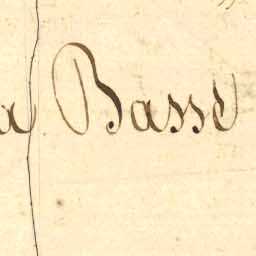 a Basse